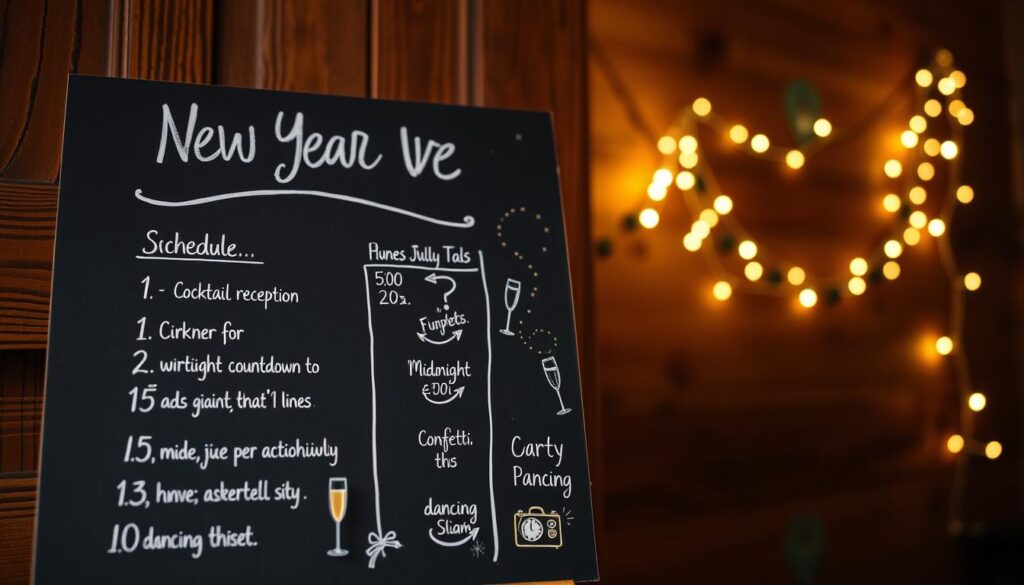 New Year Ve
Schedule...
1. - Cocktail reception
1. Cirkner for
2. wirtüight countdown to
15 ads giant, that'1 lines
1.5, mide, jue per
13, hnve; askertell sity.
1.0 dancing thiset.
Hunes Jully Tals
500
20z.
?
Funplets.
Midnight
Confetti.
this
dancing
Sliam
Carty
Pancing